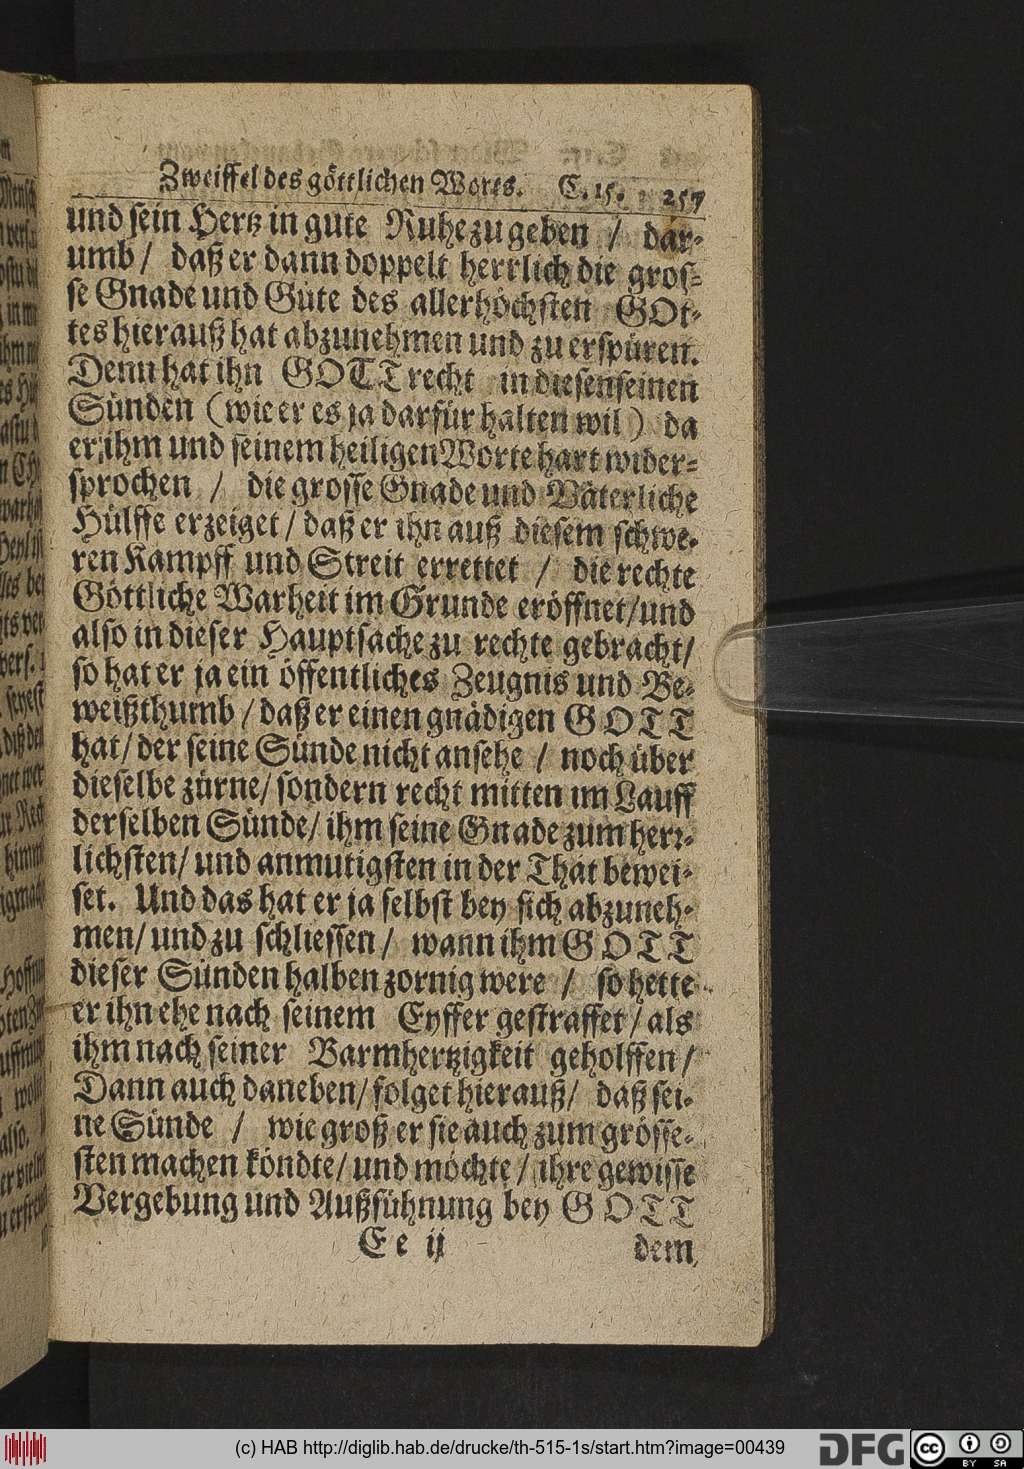 Zweiffel des göttlichen Worts. C. 15. 257
und sein Hertz in gute Ruhe zu geben / dar-
umb / daß er dann doppelt herrlich die gros-
se Gnade und Güte des allerhöchsten GOt-
tes hierauß hat abzunehmen und zu erspüren.
Denn hat ihn GOTT recht in diesen seinen
Sünden (wie er es ja darfür halten wil) da
er ihm und seinem heiligen Worte hart wider-
sprochen / die grosse Gnade und Väterliche
Hülffe erzeiget / daß er ihn auß diesem schwe-
ren Kampff und Streit errettet / die rechte
Göttliche Warheit im Grunde eröffnet / und
also in dieser Hauptsache zu rechte gebracht /
so hat er ja ein öffentliches Zeugnis und Be-
weißthumb / daß er einen gnädigen GOTT
hat / der seine Sünde nicht ansehe / noch über
dieselbe zürne / sondern recht mitten im Lauff
derselben Sünde / ihm seine Gnade zum herr-
lichsten / und anmutigsten in der That bewei-
set. Und das hat er ja selbst bey sich abzuneh-
men / und zu schliessen / wann ihm GOTT
dieser Sünden halben zornig were / so hette
er ihn ehe nach seinem Eyffer gestraffet / als
ihm nach seiner Barmhertzigkeit geholffen /
Dann auch daneben / folget hierauß / daß sei-
ne Sünde / wie groß er sie auch zum grösse-
sten machen köndte / und möchte / ihre gewisse
Vergebung und Außsühnung bey GOTT
Ee ij dem
(c) HAB http://diglib.hab.de/drucke/th-515-1s/start.htm?image=00439
DFG cc BY SA